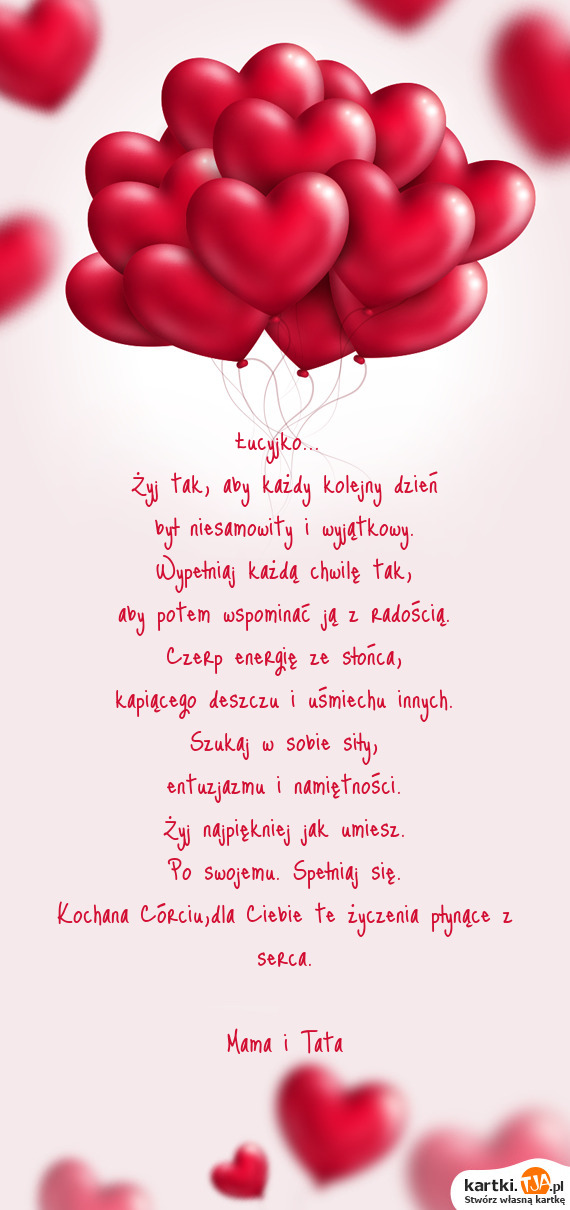 Łucyjko...
Żyj tak, aby każdy kolejny dzień
był niesamowity i wyjątkowy.
Wypełniaj każdą chwilę tak,
aby potem wspominać ją z radością.
Czerp energię ze słońca,
kapiącego deszczu i uśmiechu innych.
Szukaj w sobie siły,
entuzjazmu i namiętności.
Żyj najpiękniej jak umiesz.
Po swojemu. Spełniaj się.
Kochana Córciu,dla Ciebie te życzenia płynące z
serca.
Mama i Tata
kartki.TJA.pl
Stwórz własną kartkę